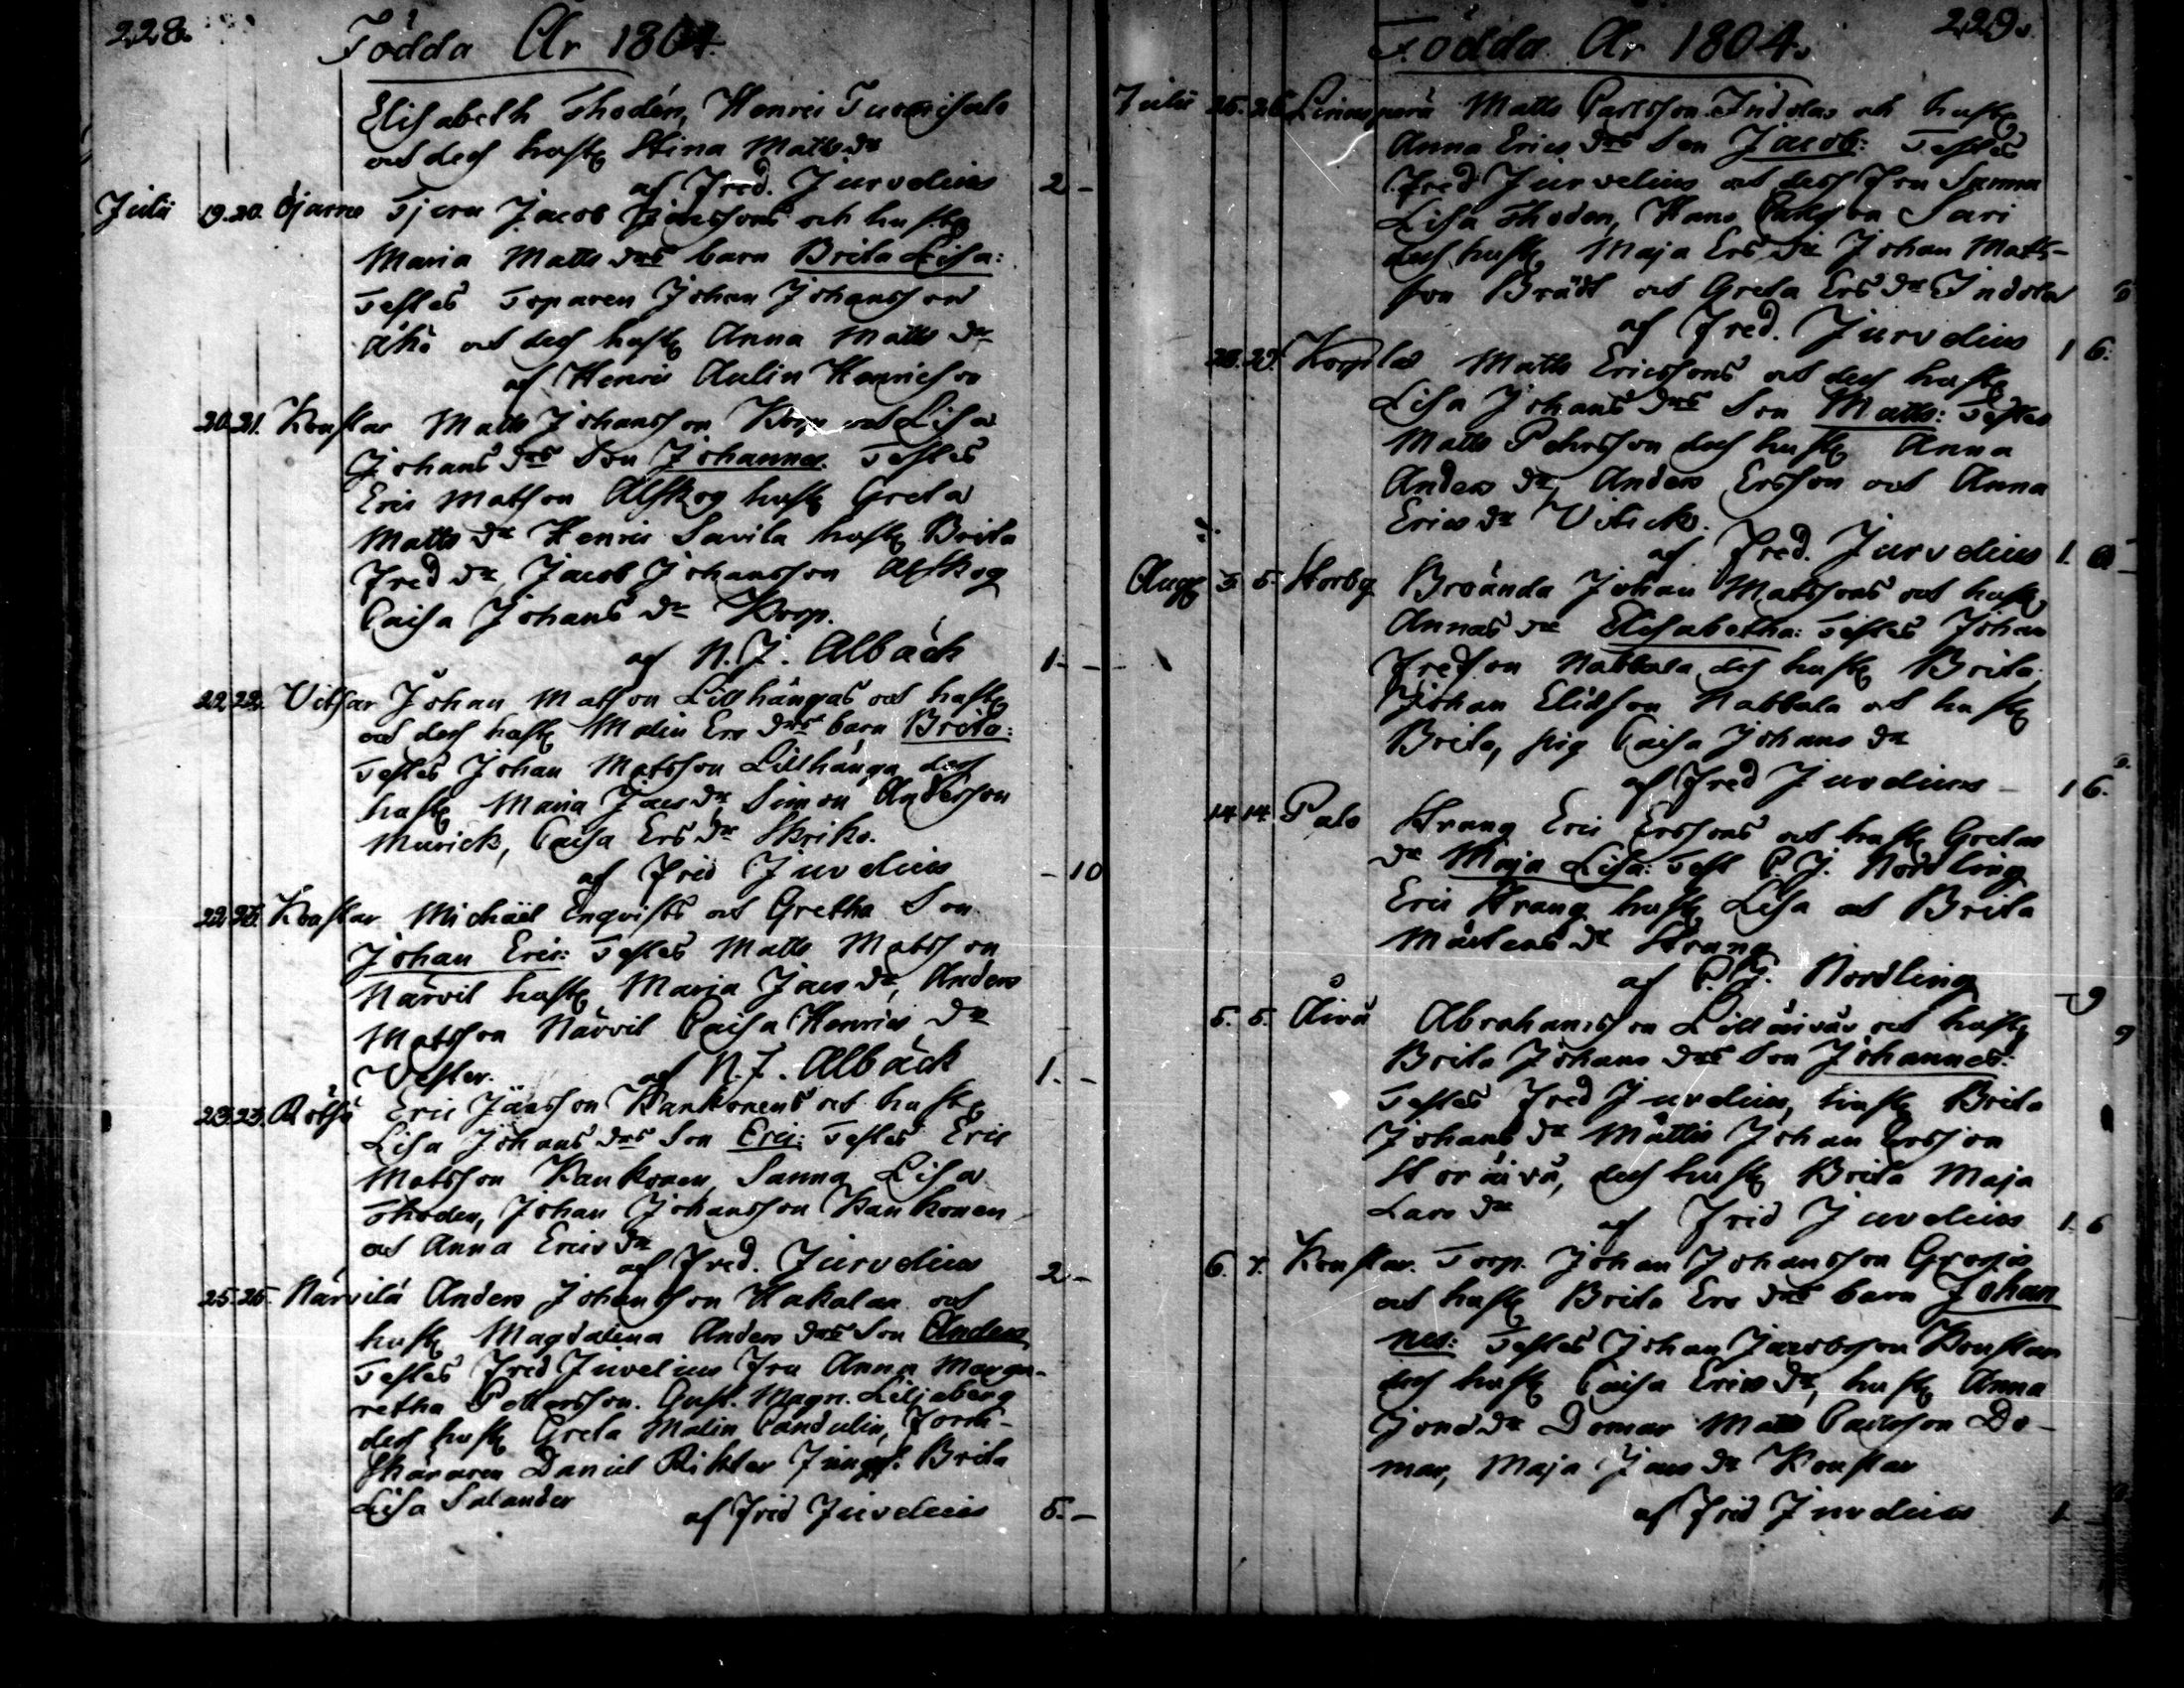 228.
Födda År 1804.
Elisabeth Thodén, Henric
och des hust. Stina Matts dr
af Fred. Jurvelius 2 -
Julii 19. 20. Tjern Jacob och hust.
Maria Matts drs barn Brita Lisa:
Testes Torparen Johan Johansson
och des hust. Anna Matts dr
af Henric Aulin Henricson
20. 21. Konstar Matts Johansson Korp och Lisa
Johans drs Son Johannes. Testes
Eric Matson Alskog hust. Greta
Matts dr Henric Savila hust. Brita
Fred dr, Jacob Johansson Alskog
Caisa Johans dr Korp.
af N. J. Albäck 1. -
22. Vitsar Johan Matson Lillhångas och hust.
och des hust. Malin Ers drs barn Brita:
Testes Johan Matsson Lillhånga des
hust. Maria Jacs dr, Simon Andersson
Murick, Caisa Ers dr Skriko.
af Fred Jurvelius - 10
22. Konstar Michaël Enqvists och Gretha Son
Johan Eric: Testes Matts Matsson
Närvil hust. Maria Jacs dr, Anders
Matsson Närvil Caisa Henrics dr
Vester. af N. J. Albäck 1. -
23. 23. Rötsö Eric Jacsson Kankonens och hust.
Lisa Johans drs Son Eric: Testes Eric
Matsson Kankonen, Sanna Lisa
Thoden, Johan Johansson Kankonen
och Anna Erics dr
af Fred. Jurvelius 2 -
25. 25. Närvilä Anders Johansson Hakalan och
hust. Magdalena Anders drs Son Anders
Testes Fred Jurvelius Fru Anna Marga-
retha Pettersson. Gust. Magn. Liljeberg
des hust. Greta Malin Candelin,
Daniel Rikter Jungf. Brita
Lisa Salander af Fred Jurvelius 5. -
229.
Födda År 1804.
Julii 25. 26. Matts Carlsson Indolas och hust.
Anna Erics drs Son Jacob: Testes
Fred Jurvelius och des Fru Sanna
Lisa Thoden, Hans Carlsson Sari
des hust. Maja Ers dr Johan Matts-
son Brådt och Greta Ers dr Indola
af Fred. Jurvelius 1 6.
28. 29. Korplax Matts Ericssons och des hust.
Lisa Johans drs Son Matts: Testes
Matts Pehrsson des hust. Anna
Anders dr, Anders Ersson och Anna
Erics dr Witick.
af Fred. Jurvelius 1. 6
Aug. 3. 5. Storby Broända Johan Matssons och hust.
Annas dr Elisabetha: Testes Johan
Fredson Nabbala des hust. Brita,
Johan Eliæson Nabbala och hust.
Brita, pig Caisa Johans dr
af Fred Jurvelius - 1 6.
14. 14. Palo Strang Eric Erssons och hust. Gretas
dr Maja Lisa: Test P. J. Nordling
Eric Strang hust. Lisa och Brita
Mårtens dr Strang
af P. J. Nordling - 9
5. 5. Åivå Abrahamsson Lillåivåv och hust.
Brita Johans drs Son Johannes:
Testes Fred Jurvelius, hust. Brita
Johans dr Mattis Johan Ersson
Storåivå, des hust. Brita Maja
Lars dr af Fred Jurvelius 1. 6
6. 7. Konstar. Torp. Johan Johansson
och hust. Brita Ers drs barn Johan
nes: Testes Johan Jacobsson Konstar
des hust. Caisa Erics dr, hust. Anna
Domar Matts Carlsson Do-
mar, Maja Jacs dr Konstar
af Fred Jurvelius 1 -